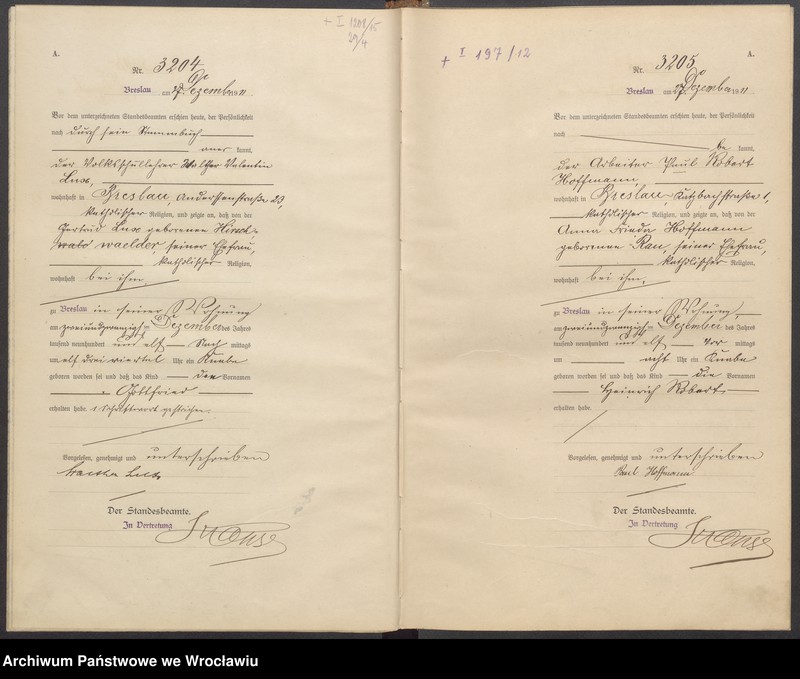 + I 1208/15
29/4
A.
Nr. 3204
Breslau am 27. Dezember 1911.
Vor dem unterzeichneten Standesbeamten erschien heute, der Persönlichkeit
nach durch sein Stammbuch
aner kannt,
der Volksschullehrer Walther Valentin
Lux,
wohnhaft in Breslau, Anderssenstraße 23,
katholischer Religion, und zeigte an, daß von der
Gertrud Lux geborenen Hirsch-
waelder, seiner Ehefrau,
katholischer Religion,
wohnhaft bei ihm,
zu Breslau in seiner Wohnung
am zweiundzwanzigsten Dezember des Jahres
tausend neunhundert und elf Nach mittags
um elf dreiviertel Uhr ein Knabe
geboren worden sei und daß das Kind den Vornamen
Gottfried
erhalten habe. 1 Schriftwort gestrichen.
Vorgelesen, genehmigt und unterschrieben
Walther Lux
Der Standesbeamte.
In Vertretung
+ I 197/12
A.
Nr. 3205
Breslau am 27. Dezember 1911
Vor dem unterzeichneten Standesbeamten erschien heute, der Persönlichkeit
nach
be kannt,
der Arbeiter Paul Robert
Hoffmann,
wohnhaft in Breslau, Katzbachstraße 1,
katholischer Religion, und zeigte an, daß von der
Anna Frieda Hoffmann
geborenen Rau, seiner Ehefrau,
katholischer Religion,
wohnhaft bei ihm,
zu Breslau in seiner Wohnung,
am zweiundzwanzigsten Dezember des Jahres
tausend neunhundert und elf Vor mittags
um acht Uhr ein Knabe
geboren worden sei und daß das Kind die Vornamen
Heinrich Robert
erhalten habe.
Vorgelesen, genehmigt und unterschrieben
Paul Hoffmann
Der Standesbeamte.
In Vertretung
Archiwum Państwowe we Wrocławiu